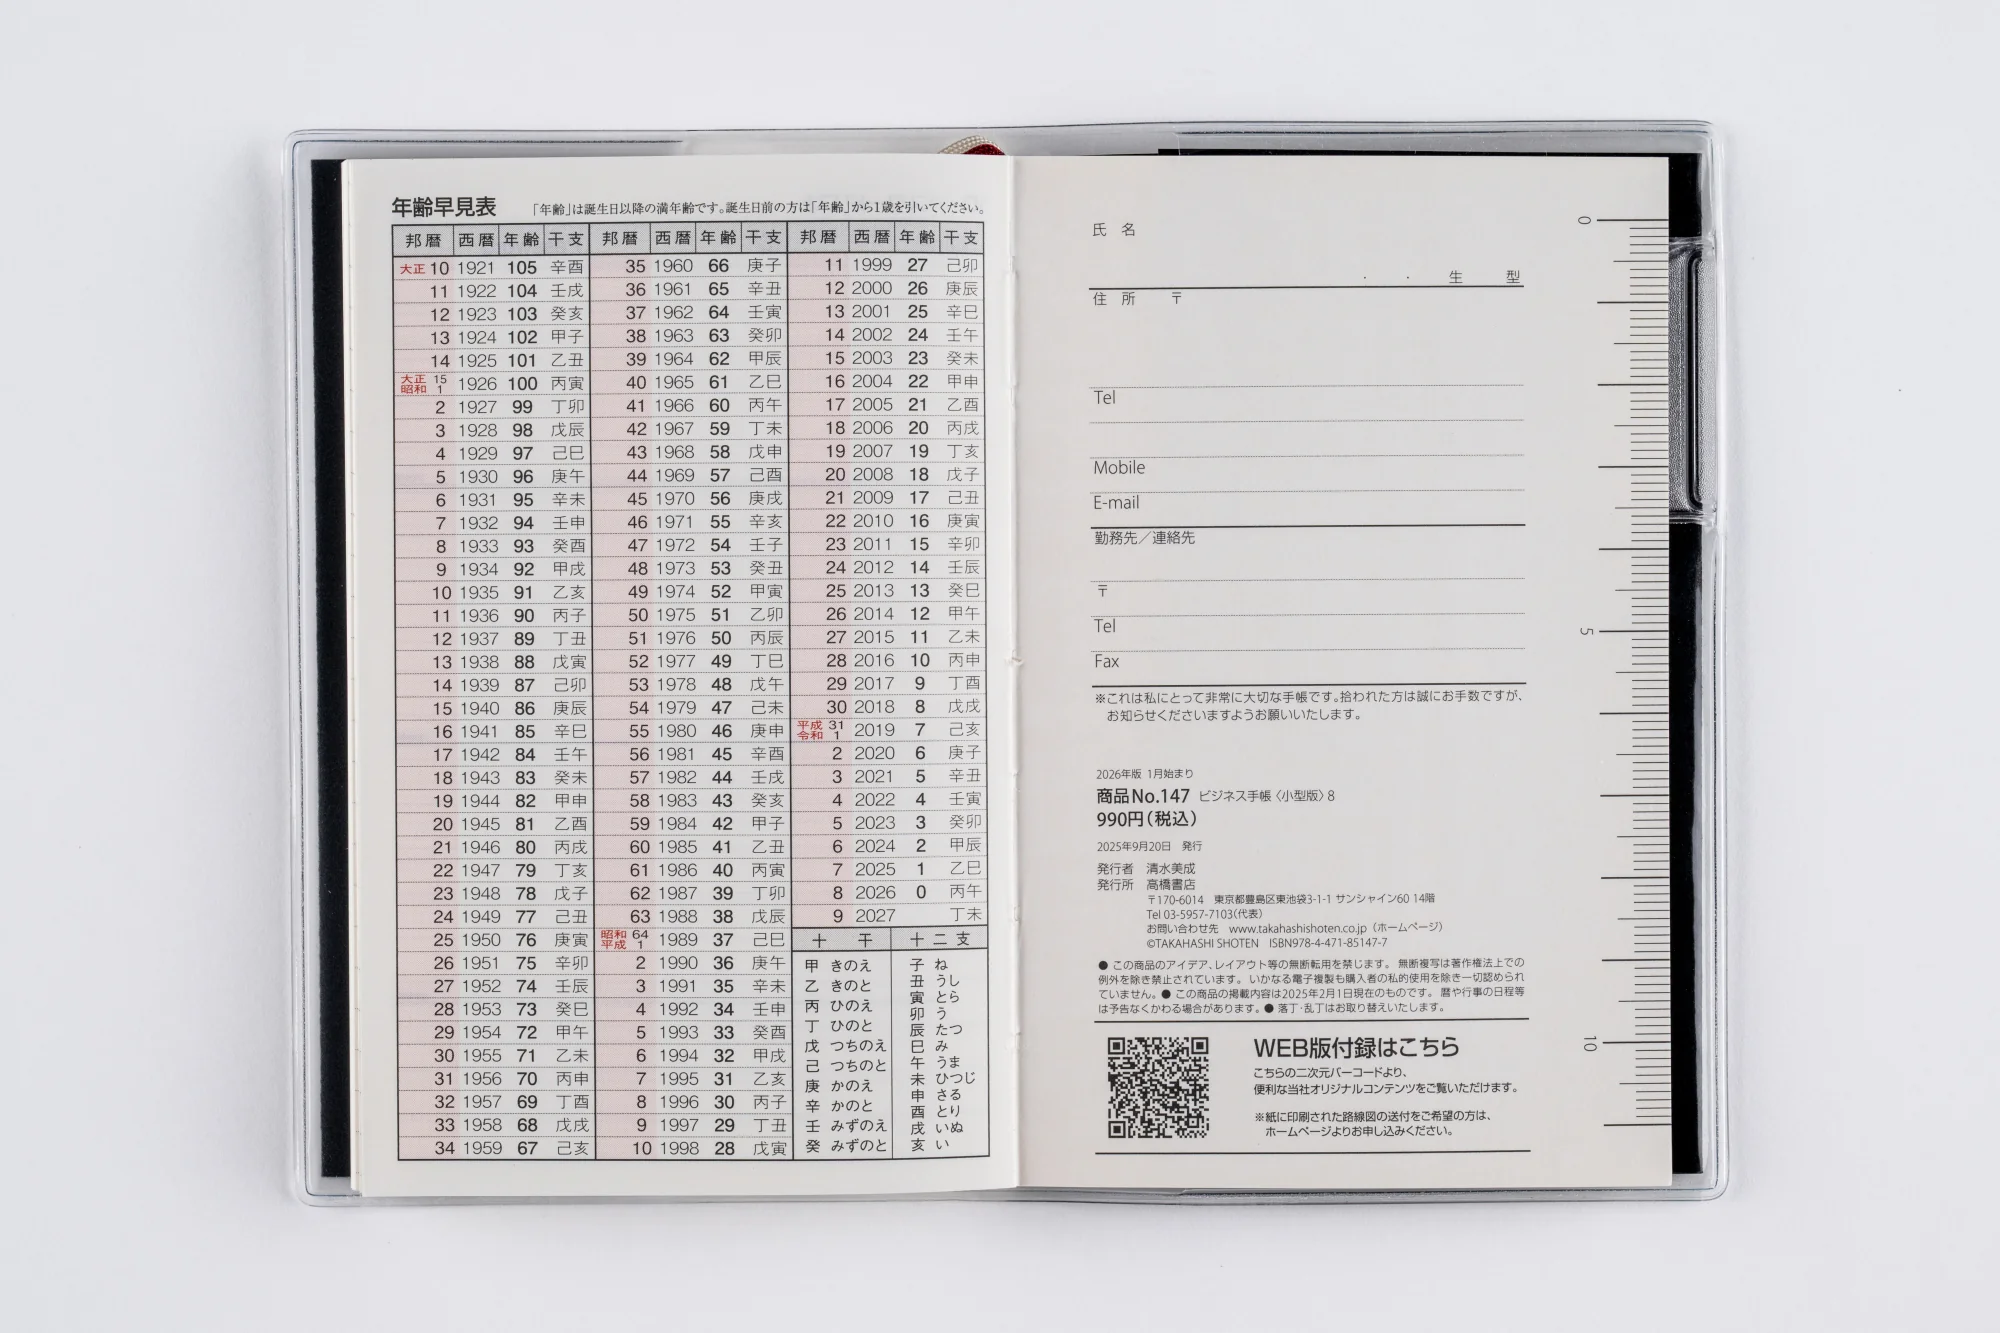 年齢早見表 「年齢」は誕生日以降の満年齢です。誕生日前の方は「年齢」から1歳を引いてください。
邦暦 西暦 年齢 干支 邦暦 西暦 年齢 干支 邦暦 西暦 年齢 干支
大正 10 1921 105 辛酉 35 1960 66 庚子 11 1999 27 己卯
11 1922 104 壬戌 36 1961 65 辛丑 12 2000 26 庚辰
12 1923 103 癸亥 37 1962 64 壬寅 13 2001 25 辛巳
13 1924 102 甲子 38 1963 63 癸卯 14 2002 24 壬午
14 1925 101 乙丑 39 1964 62 甲辰 15 2003 23 癸未
大正 15 昭和 1 1926 100 丙寅 40 1965 61 乙巳 16 2004 22 甲申
2 1927 99 丁卯 41 1966 60 丙午 17 2005 21 乙酉
3 1928 98 戊辰 42 1967 59 丁未 18 2006 20 丙戌
4 1929 97 己巳 43 1968 58 戊申 19 2007 19 丁亥
5 1930 96 庚午 44 1969 57 己酉 20 2008 18 戊子
6 1931 95 辛未 45 1970 56 庚戌 21 2009 17 己丑
7 1932 94 壬申 46 1971 55 辛亥 22 2010 16 庚寅
8 1933 93 癸酉 47 1972 54 壬子 23 2011 15 辛卯
9 1934 92 甲戌 48 1973 53 癸丑 24 2012 14 壬辰
10 1935 91 乙亥 49 1974 52 甲寅 25 2013 13 癸巳
11 1936 90 丙子 50 1975 51 乙卯 26 2014 12 甲午
12 1937 89 丁丑 51 1976 50 丙辰 27 2015 11 乙未
13 1938 88 戊寅 52 1977 49 丁巳 28 2016 10 丙申
14 1939 87 己卯 53 1978 48 戊午 29 2017 9 丁酉
15 1940 86 庚辰 54 1979 47 己未 30 2018 8 戊戌
16 1941 85 辛巳 55 1980 46 庚申 平成 31 令和 1 2019 7 己亥
17 1942 84 壬午 56 1981 45 辛酉 2 2020 6 庚子
18 1943 83 癸未 57 1982 44 壬戌 3 2021 5 辛丑
19 1944 82 甲申 58 1983 43 癸亥 4 2022 4 壬寅
20 1945 81 乙酉 59 1984 42 甲子 5 2023 3 癸卯
21 1946 80 丙戌 60 1985 41 乙丑 6 2024 2 甲辰
22 1947 79 丁亥 61 1986 40 丙寅 7 2025 1 乙巳
23 1948 78 戊子 62 1987 39 丁卯 8 2026 0 丙午
24 1949 77 己丑 63 1988 38 戊辰 9 2027 丁未
25 1950 76 庚寅 昭和 64 平成 1 1989 37 己巳
26 1951 75 辛卯 2 1990 36 庚午
27 1952 74 壬辰 3 1991 35 辛未
28 1953 73 癸巳 4 1992 34 壬申
29 1954 72 甲午 5 1993 33 癸酉
30 1955 71 乙未 6 1994 32 甲戌
31 1956 70 丙申 7 1995 31 乙亥
32 1957 69 丁酉 8 1996 30 丙子
33 1958 68 戊戌 9 1997 29 丁丑
34 1959 67 己亥 10 1998 28 戊寅
十干
甲 きのえ
乙 きのと
丙 ひのえ
丁 ひのと
戊 つちのえ
己 つちのと
庚 かのえ
辛 かのと
壬 みずのえ
癸 みずのと
十二支
子 ね
丑 うし
寅 とら
卯 う
辰 たつ
巳 み
午 うま
未 ひつじ
申 さる
酉 とり
戌 いぬ
亥 い
氏 名
・ ・ 生 型
住 所 〒
Tel
Mobile
E-mail
勤務先／連絡先
〒
Tel
Fax
※これは私にとって非常に大切な手帳です。拾われた方は誠にお手数ですが、
お知らせくださいますようお願いいたします。
2026年版 1月始まり
商品No.147 ビジネス手帳〈小型版〉8
990円（税込）
2025年9月20日 発行
発行者 清水美成
発行所 高橋書店
〒170-6014 東京都豊島区東池袋3-1-1 サンシャイン60 14階
Tel 03-5957-7103（代表）
お問い合わせ先 www.takahashishoten.co.jp（ホームページ）
©TAKAHASHI SHOTEN ISBN978-4-471-85147-7
● この商品のアイデア、レイアウト等の無断転用を禁じます。 無断複写は著作権法上での
例外を除き禁止されています。 いかなる電子複製も購入者の私的使用を除き一切認められ
ていません。● この商品の掲載内容は2025年2月1日現在のものです。 暦や行事の日程等
は予告なくかわる場合があります。● 落丁・乱丁はお取り替えいたします。
WEB版付録はこちら
こちらの二次元バーコードより、
便利な当社オリジナルコンテンツをご覧いただけます。
※紙に印刷された路線図の送付をご希望の方は、
ホームページよりお申し込みください。
0
5
10